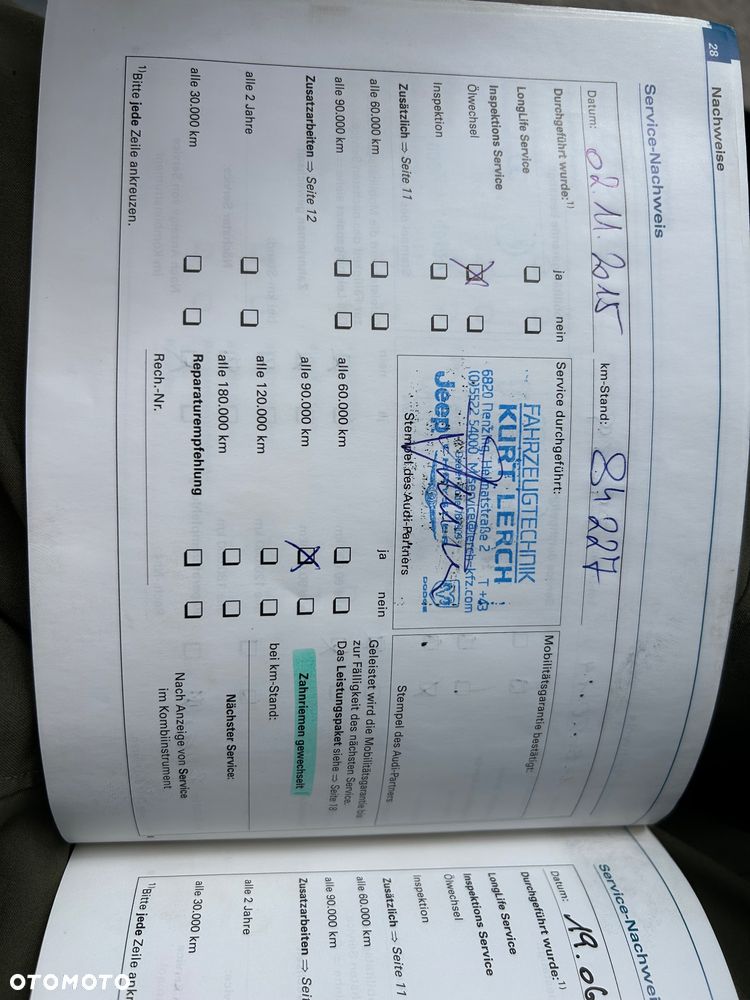 28
Nachweise
Service-Nachweis
Datum: 02.11.2015
km-Stand: 84 227
Durchgeführt wurde:¹⁾
ja
nein
LongLife Service
Inspektions Service
Ölwechsel
Inspektion
Zusätzlich ⇒ Seite 11
alle 60.000 km
alle 90.000 km
Zusatzarbeiten ⇒ Seite 12
alle 2 Jahre
alle 30.000 km
¹⁾Bitte jede Zeile ankreuzen.
Service durchgeführt:
FAHRZEUGTECHNIK
KURT LERCH
6820
2 T +43
(0)5522 54000
Jeep
DODGE
Stempel des Audi-Partners
ja
nein
alle 60.000 km
alle 90.000 km
alle 120.000 km
alle 180.000 km
Reparaturempfehlung
Rech.-Nr.
Mobilitätsgarantie bestätigt:
Stempel des Audi-Partners
Geleistet wird die Mobilitätsgarantie bis
zur Fälligkeit des nächsten Service.
Das Leistungspaket siehe ⇒ Seite 18
Zahnriemen gewechselt
bei km-Stand:
Nächster Service:
Nach Anzeige von Service
im Kombiinstrument
Service-Nachwei
Datum: 19.06
Durchgeführt wurde:¹⁾
LongLife Service
Inspektions Service
Ölwechsel
Inspektion
Zusätzlich ⇒ Seite 11
alle 60.000 km
alle 90.000 km
Zusatzarbeiten ⇒ Sei
alle 2 Jahre
alle 30.000 km
¹⁾Bitte jede Zeile ankr
OTOMOTO